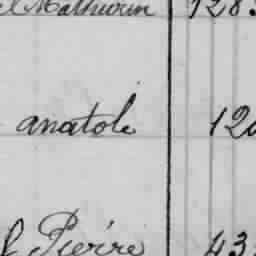 Mathurin 128
anatole 120
Pierre 43